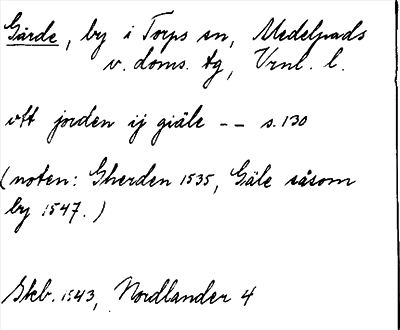 Gärde, by i Torps sn, Medelpads
v. doms. tg, Vrnl. l.
vtt jorden ij giäle -- s. 130
(noten: Gherden 1535, Gäle såsom
by 1547.)
Skb. 1543, Nordlander 4